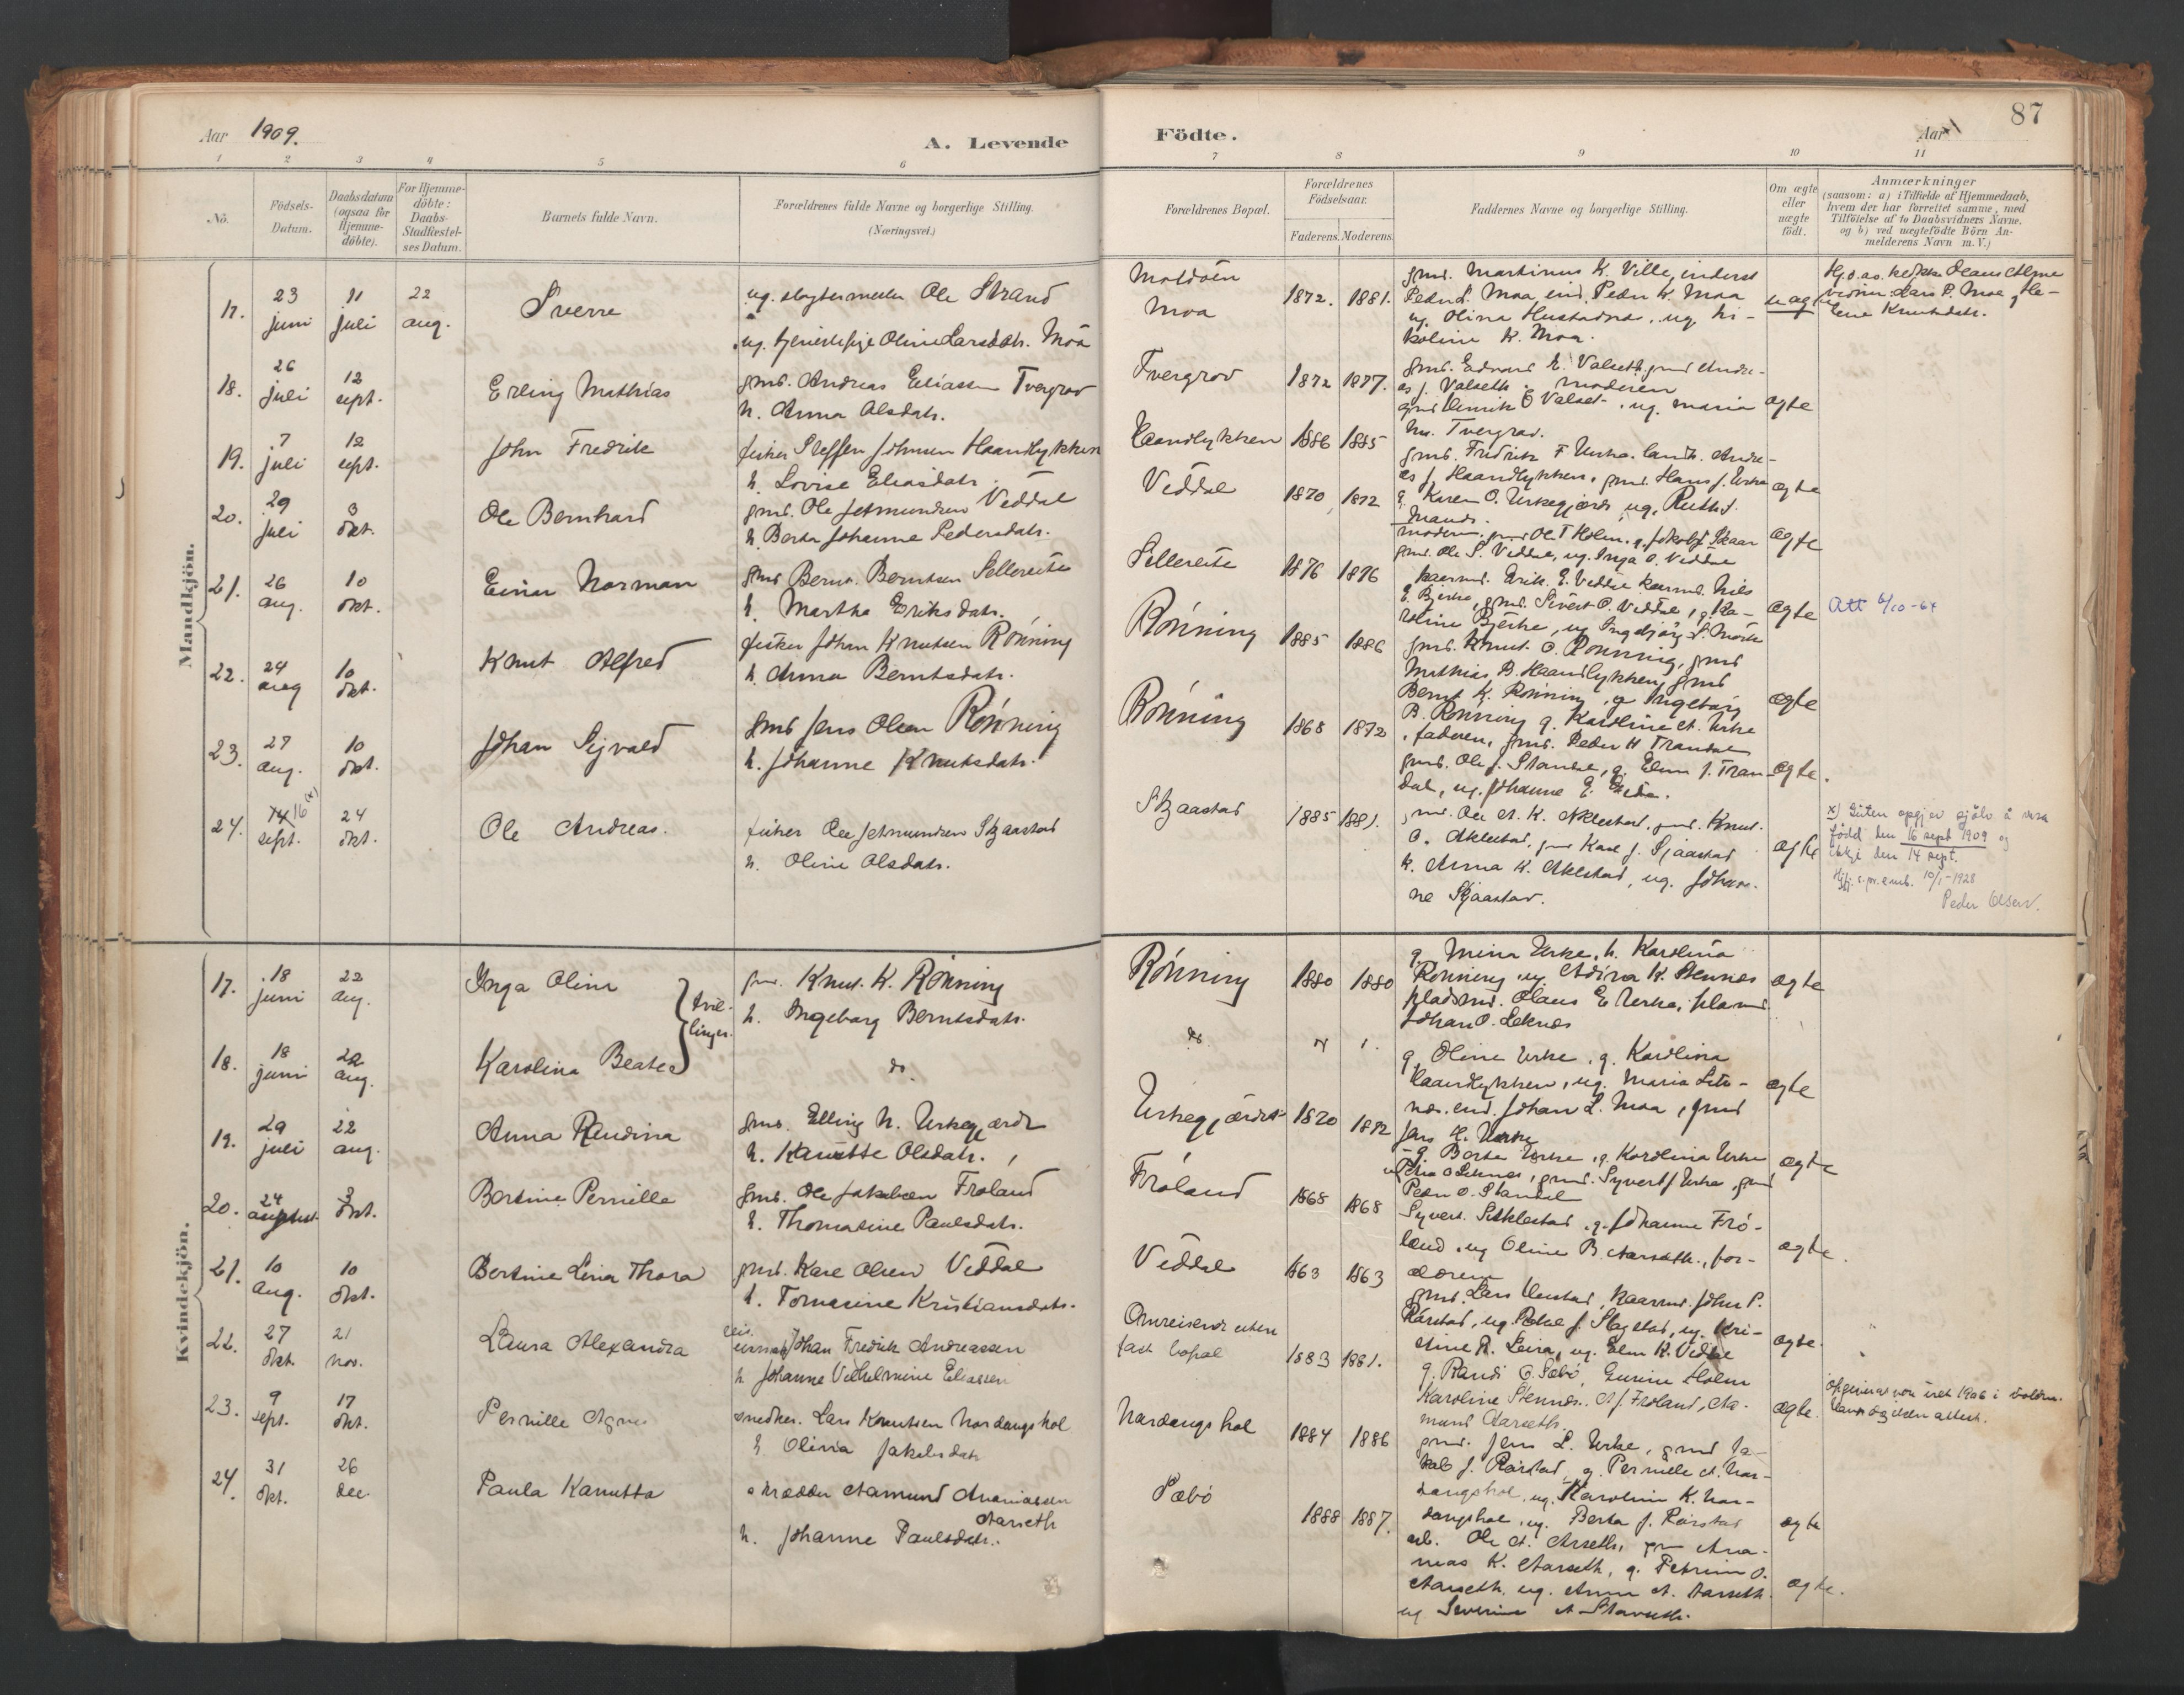 87
Aar 1909.
A. Levende
Födte.
Aar
1 2 3 4 5 6
7 8 9 10 11
Nô.
Födsels-
Datum.
Daabsdatum
(ogsaa for
Hjemme-
döbte).
For Hjemme-
döbte:
Daabs-
Stadfæstel-
ses Datum.
Barnets fulde Navn.
Forældrenes fulde Navne og borgerlige Stilling.
(Næringsvei.)
Forældrenes Bopæl.
Forældrenes
Födselsaar.
Faderens. Moderens.
Faddernes Navne og borgerlige Stilling.
Om ægte
eller
uægte
födt.
Anmærkninger
(saasom: a) i Tilfælde af Hjemmedaab,
hvem der har forrettet samme, med
Tilföielse af to Daabsvidners Navne.
og b) ved uægtefödte Börn An-
melderens Navn m. V.)
Mandkjön.
17. 23 juni 11 juli 22 aug.
Sverre
ug. slagtermester Ole Strand
ug. tjenestepige Oline Larsdatr. Moa
Moldöen
Moa
1872. 1881.
gmd. Martinus K. Ville, inderst
Peder L. Moa, ind. Peder K. Moa
ug. Olina Hustadnes, ug. Ni-
koline K. Moa.
uægte
18. 26 juli 12 sept.
Erling Mathias
gmd. Andreas Eliassen Tvergrov
h. Anna Olsdatr.
Tvergrov
1872 1877.
gmd. Edvard E. Valseth gmd Andre-
as J. Valseth, moderen
gmd Henrik O Valset, ug. Maria
M. Tvergrov.
ægte
19. 7 juli 12 sept.
John Fredrik
fisker Steffen Johnsen Haandlykken
h. Lovise Eliasdatr.
Haandlykken 1886 1885
gmd. Fredrik F Urke. landh. Andre-
as J. Haandlykken, gmd. Hans J. Urke
g. Karen O. Urkegjærde, ug. Ruth J.
Strands.
ægte
20. 29 juli 3 okt.
Ole Bernhard
gmd. Ole Jetmundsen Veddal
h. Berta Johanne Pedersdatr.
Veddal
1870 1872
moderen, gmd Ole T Holm, g. Jakob J. Skaar
gmd. Ole S. Veddal, ug. Inga O. Veddal
ægte
21. 26 aug. 10 okt.
Einar Norman
gmd Bernt. Berntsen Sellereite
h. Martha Eriksdatr.
Sellereite
1876 1876
kaarmd. Erik. E. Veddal kaarmd. Nils
E. Bjerke, gmd. Sivert O. Veddal, g. Ka-
roline Bjerke, ug Ingebjörg S. Mörk
ægte
Att 6/10-64
22. 24 aug 10 okt.
Knut Alfred
fisker Johan Knutsen Rönning
h. Anna Berntsdatr.
Rönning
1885 1886
gmd. Knut O. Rönning, gmd
Mathias B. Haandlykken, gmd
Bernt K. Rönning, g Ingeborg
B. Rönning g. Karoline A. Urke
ægte
23. 27 aug. 10 okt.
Johan Sigvald
gmd Jens Olsen Rönning
h. Johanne Knutsdatr.
Rönning
1868 1872
faderen, gmd. Peder H Trandal
gmd. Ole J. Standal, g. Elen J. Tran-
dal, ug. Johanne E. Eide.
ægte.
24. 14 16 (x) sept. 24 okt.
Ole Andreas.
fisker Ole Jetmundsen Sjaastad
h. Oline Olsdatr.
Sjaastad
1885 1881.
gmd. Ole A. K. Aklestad, gmd. Knut
O. Aklestad, gmd Karl J. Sjaastad
k. Anna K. Aklestad, ug. Johan-
ne Sjaastad.
ægte
x) Guten opgjev sjölv å vera
född den 16 sept 1909 og
ikkje den 14 sept.
10/1-1928
Peder Olsen.
Kvindekjön.
17. 18 juni 22 aug.
Inga Oline
tvil-
linger.
gmd. Knut. K. Rönning
h. Ingeborg Berntsdatr.
Rönning
1880 1880
g. Mina Urke, h. Karolina
Rönning ug. Adina K. Stennes
pladsmd. Olaus E Urke,
Johan O. Leknes
ægte
18. 18 juni 22 aug.
Karolina Beate
do.
do.
g. Oline Urke, g. Karolina
Haandlykken, ug. Maria Lek-
nes. ind. Johan L. Moa, gmd
Jens H. Urke
ægte
19. 29 juli 22 aug.
Anna Randina
gmd. Elling N. Urkegjærde
h. Kanutte Olsdatr.
Urkegjærdet 1870 1872
g. Berte Urke, g. Karolina Urke
ug Petra O Leknes, gmd. Syvert J Urke, gmd
Peder O. Standal
ægte
20. 24 august 3 okt.
Bertine Pernille
gmd. Ole Jakobsen Fröland
h. Thomasine Paulsdatr.
Fröland
1868 1868
Syvert. Aklestad, g. Johanne Frö-
land, ug Oline B Aarseth., for-
ældrene
ægte.
21. 10 aug. 10 okt.
Bertine Lina Thora
gmd. Karl Olsen Veddal
h. Tomasine Kristiansdatr.
Veddal
1863 1863
gmd. Lars Urestad, kaarmd. John P.
Rörstad, ug. Petra J. Slagstad, ug. Kri-
stine R. Leira, ug. Elen K. Veddal
ægte.
22. 27 okt. 21 nov.
Laura Alexandra
Johan Fredrik Andreassen
h Johanne Vilhelmine Eliassen
Omreisende uten
fast bopæl
1883 1881.
g. Randi O. Sæbö, Gurine Holm
Karoline Stennes, A J. Fröland, Aa-
mund Aarseth.
ægte.
23. 9 sept. 17 okt.
Pernille Agnes
snedker. Lars Knutsen Nordangshol
h. Olivia Jakobsdatr
Nordangshol
1884 1886
gmd. Jens L. Urke, gmd Ja-
kob J. Rörstad, g. Pernille A. Nor-
dangshol, ug. Karoline K. Nor-
dangshol, ug. Berta J. Rörstad
ægte
24. 31 okt. 26 dec.
Paula Kanutta
skrædder Aamund Ananiassen
Aarseth
h. Johanne Paulsdatr.
Sæbö
1888 1887.
arb. Ole A. Aarseth, gmd Ana-
nias K. Aarseth, g. Petrine O.
Aarseth, ug. Anne A. Aarseth
ug Severine A Stavseth.
ægte.